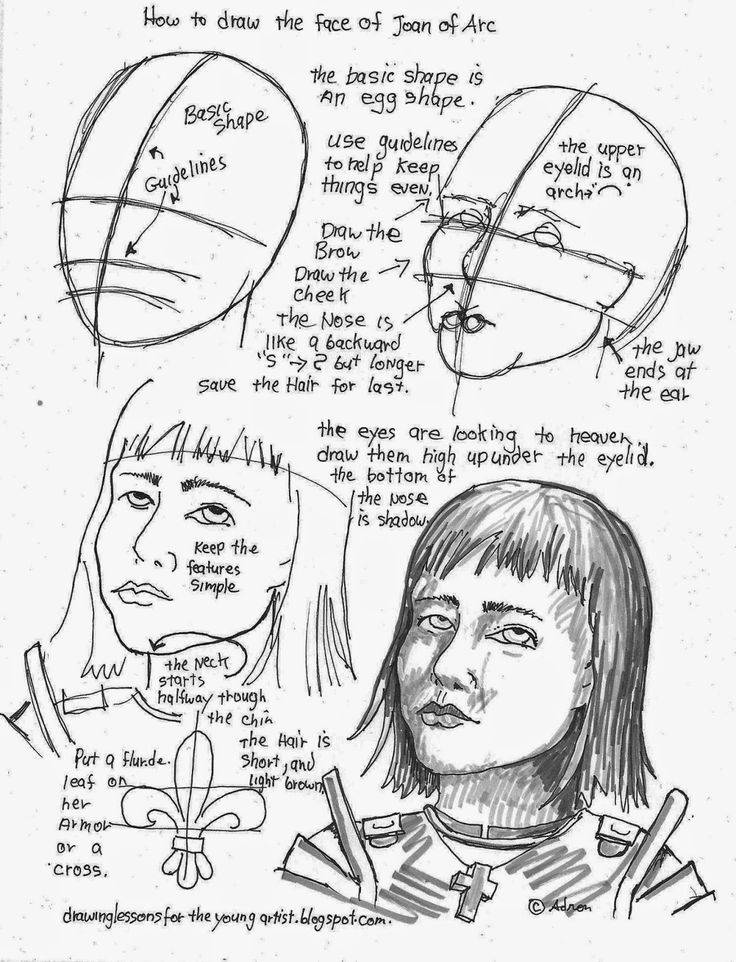 How to draw the face of Joan of Arc
the basic shape is
An egg shape.
Basic
shape
Guidelines
use guidelines
to help keep
things even.
the upper
eyelid is an
arch→"⌒"
Draw the
Brow
Draw the
cheek
the Nose is
like a backward
"S"→Ƨ but longer
save the Hair for last.
the jaw
ends at
the ear
the eyes are looking to heaven
draw them high up under the eyelid.
the bottom of
the Nose
is shadow.
Keep the
features
simple
the Neck
starts
halfway trough
the chin
The Hair is
short, and
light brown
Put a flurde.
leaf on
her
Armor
or a
cross.
© Adron
drawinglessonsfortheyoungartist.blogspot.com.